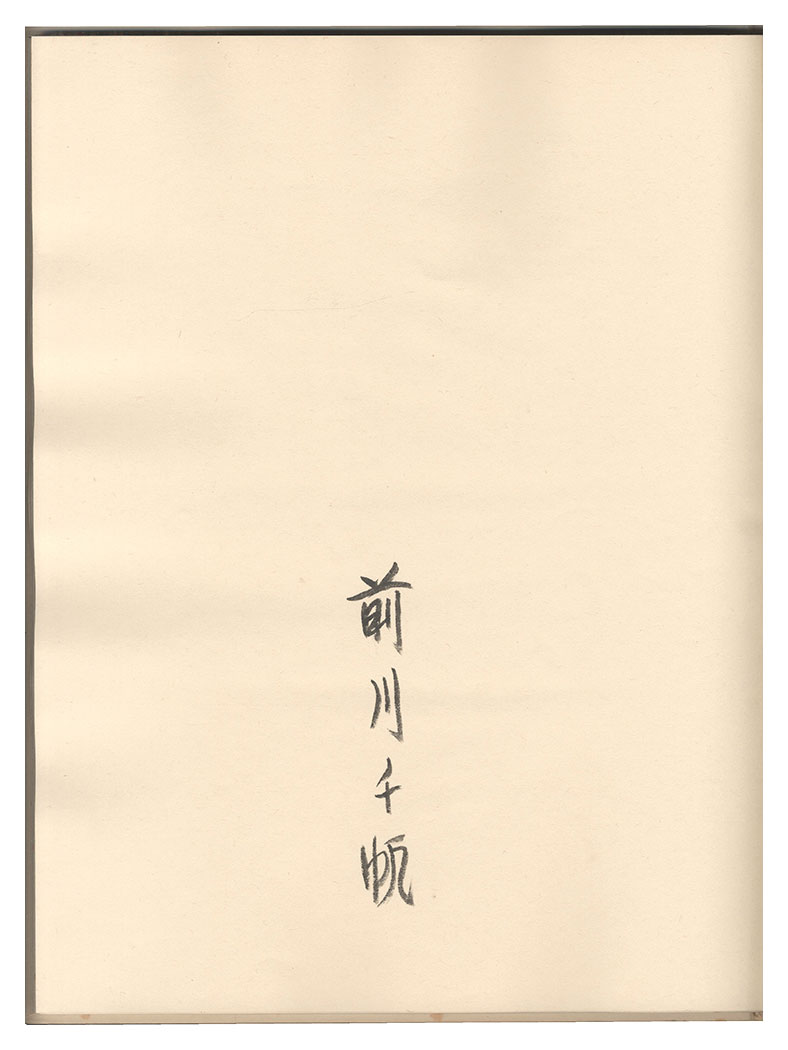 前川千帆